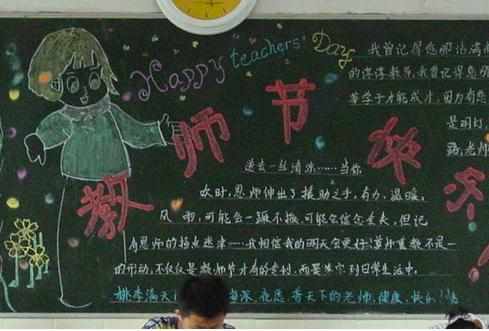 Happy teachers' Day
教师节快乐
我曾记得您那
的谆谆教导,我曾记得您
莘莘学子才能成才,因为有您
是明灯
送去一丝清凉……当你
火时,恩师伸出了援助之手,有力、温暖。
风雨,可能会一蹶不振,可能会信念丢失,但记
有恩师的指点迷津……我相信我的明天会更好!尊师重教不是一
的行动,不仅仅是教师节才有的专利,而要落实到日常生活中。
桃李满天 海深,祝愿普天下的老师,健康、快乐!